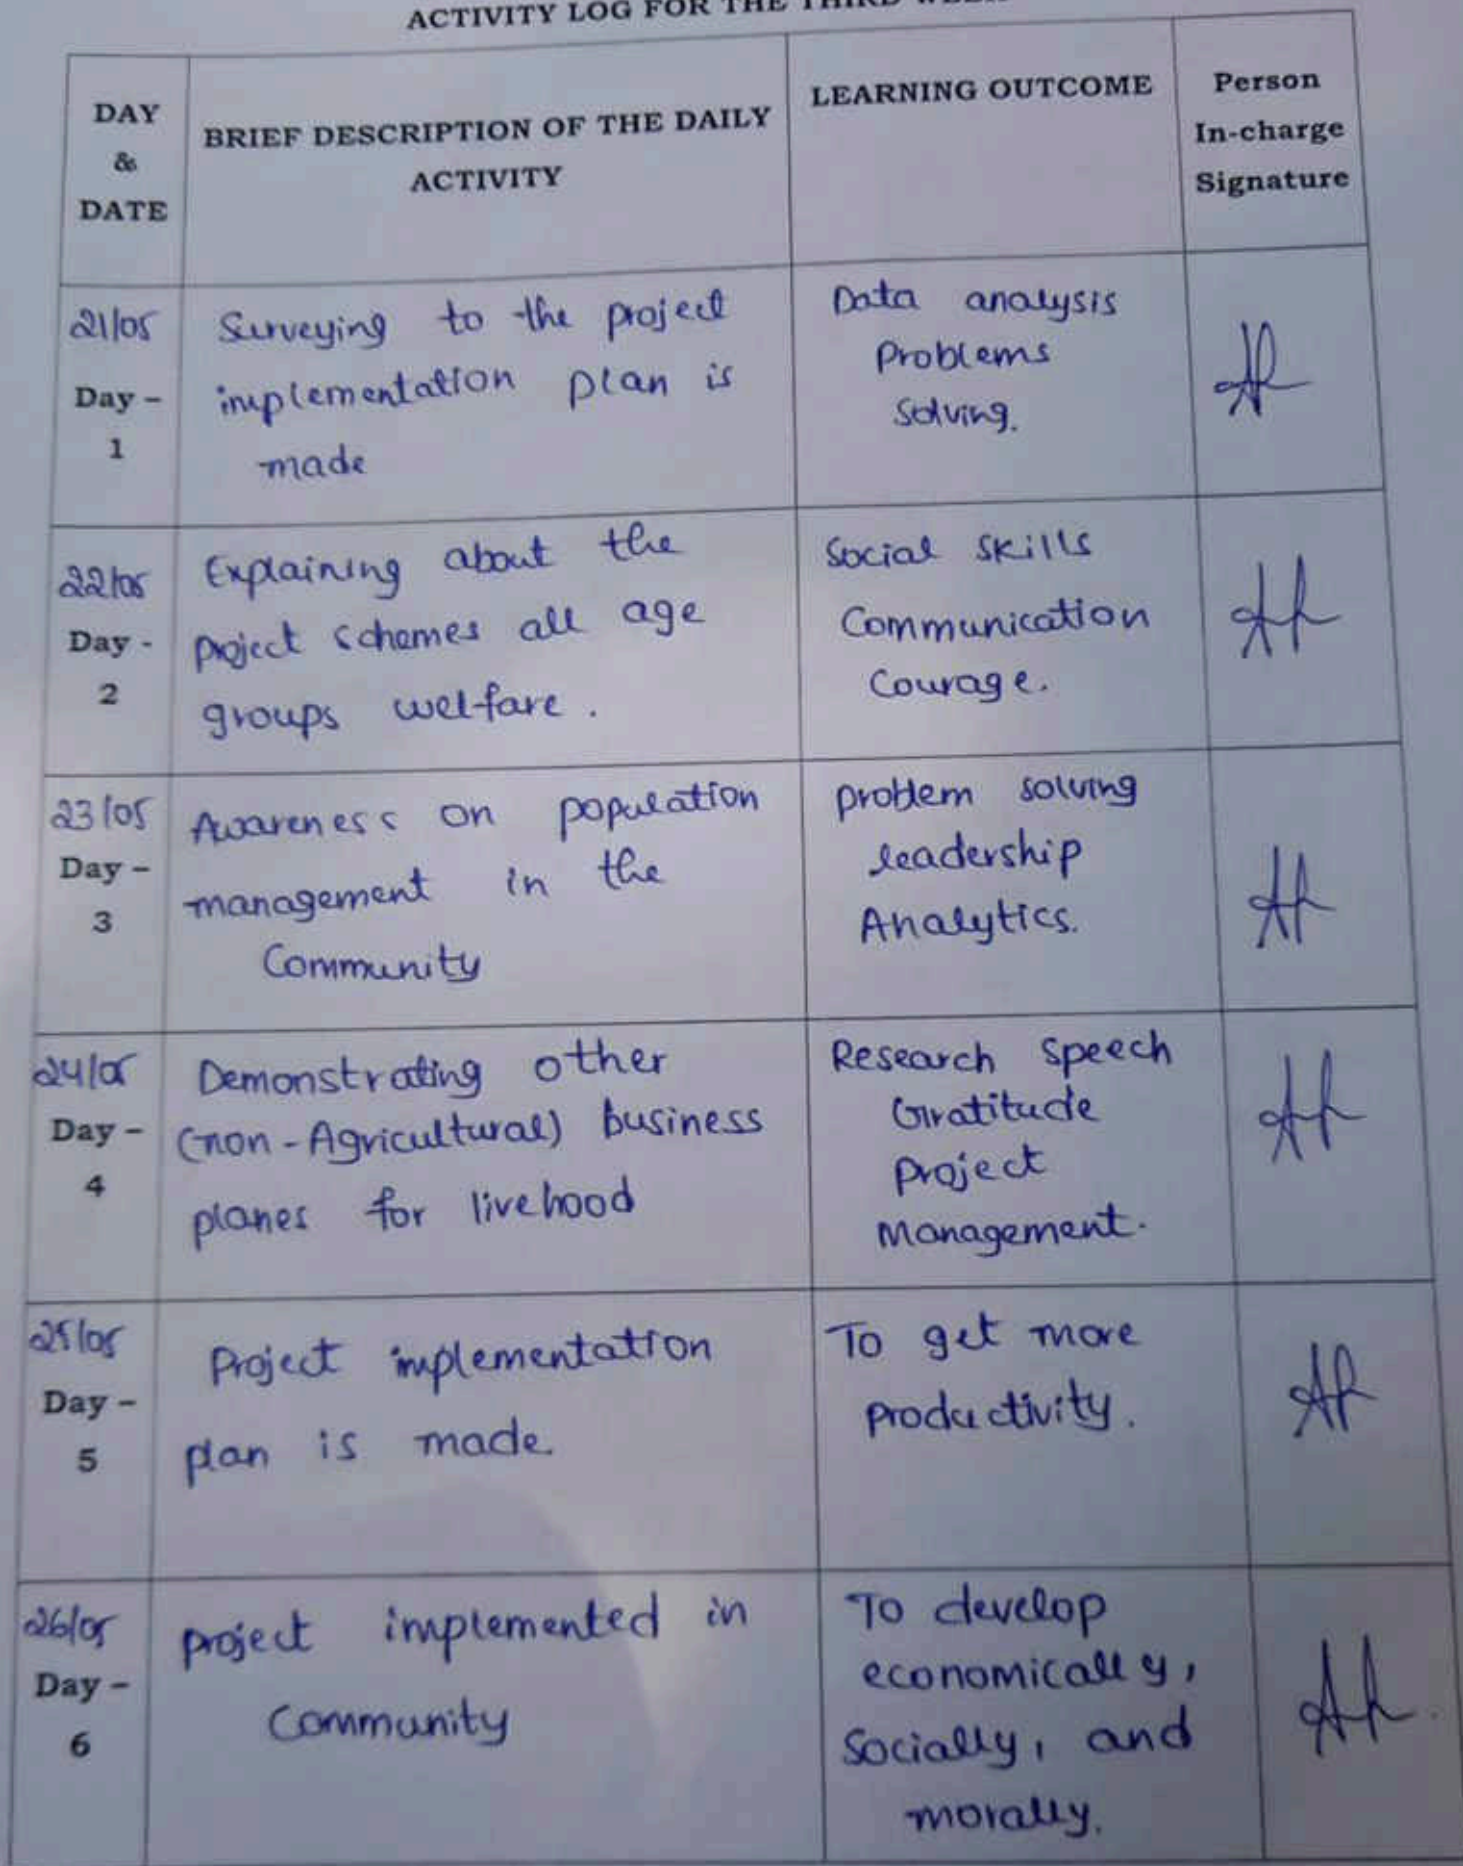 ACTIVITY LOG FOR THE THIRD WEEK
DAY
&
DATE
BRIEF DESCRIPTION OF THE DAILY
ACTIVITY
LEARNING OUTCOME
Person
In-charge
Signature
21/05
Day –
1
Surveying to the project
implementation plan is
made
Data analysis
Problems
Solving.
22/05
Day -
2
Explaining about the
project schemes all age
groups welfare.
Social skills
Communication
Courage.
23/05
Day –
3
Awareness on population
management in the
Community
problem solving
leadership
Analytics.
24/05
Day –
4
Demonstrating other
(non-Agricultural) business
planes for livehood
Research speech
Gratitude
project
management.
25/05
Day –
5
Project implementation
plan is made
To get more
productivity.
26/05
Day –
6
project implemented in
Community
To develop
economically,
socially, and
morally.